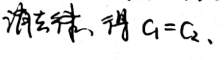 消去得, 得 C₁=C₂、